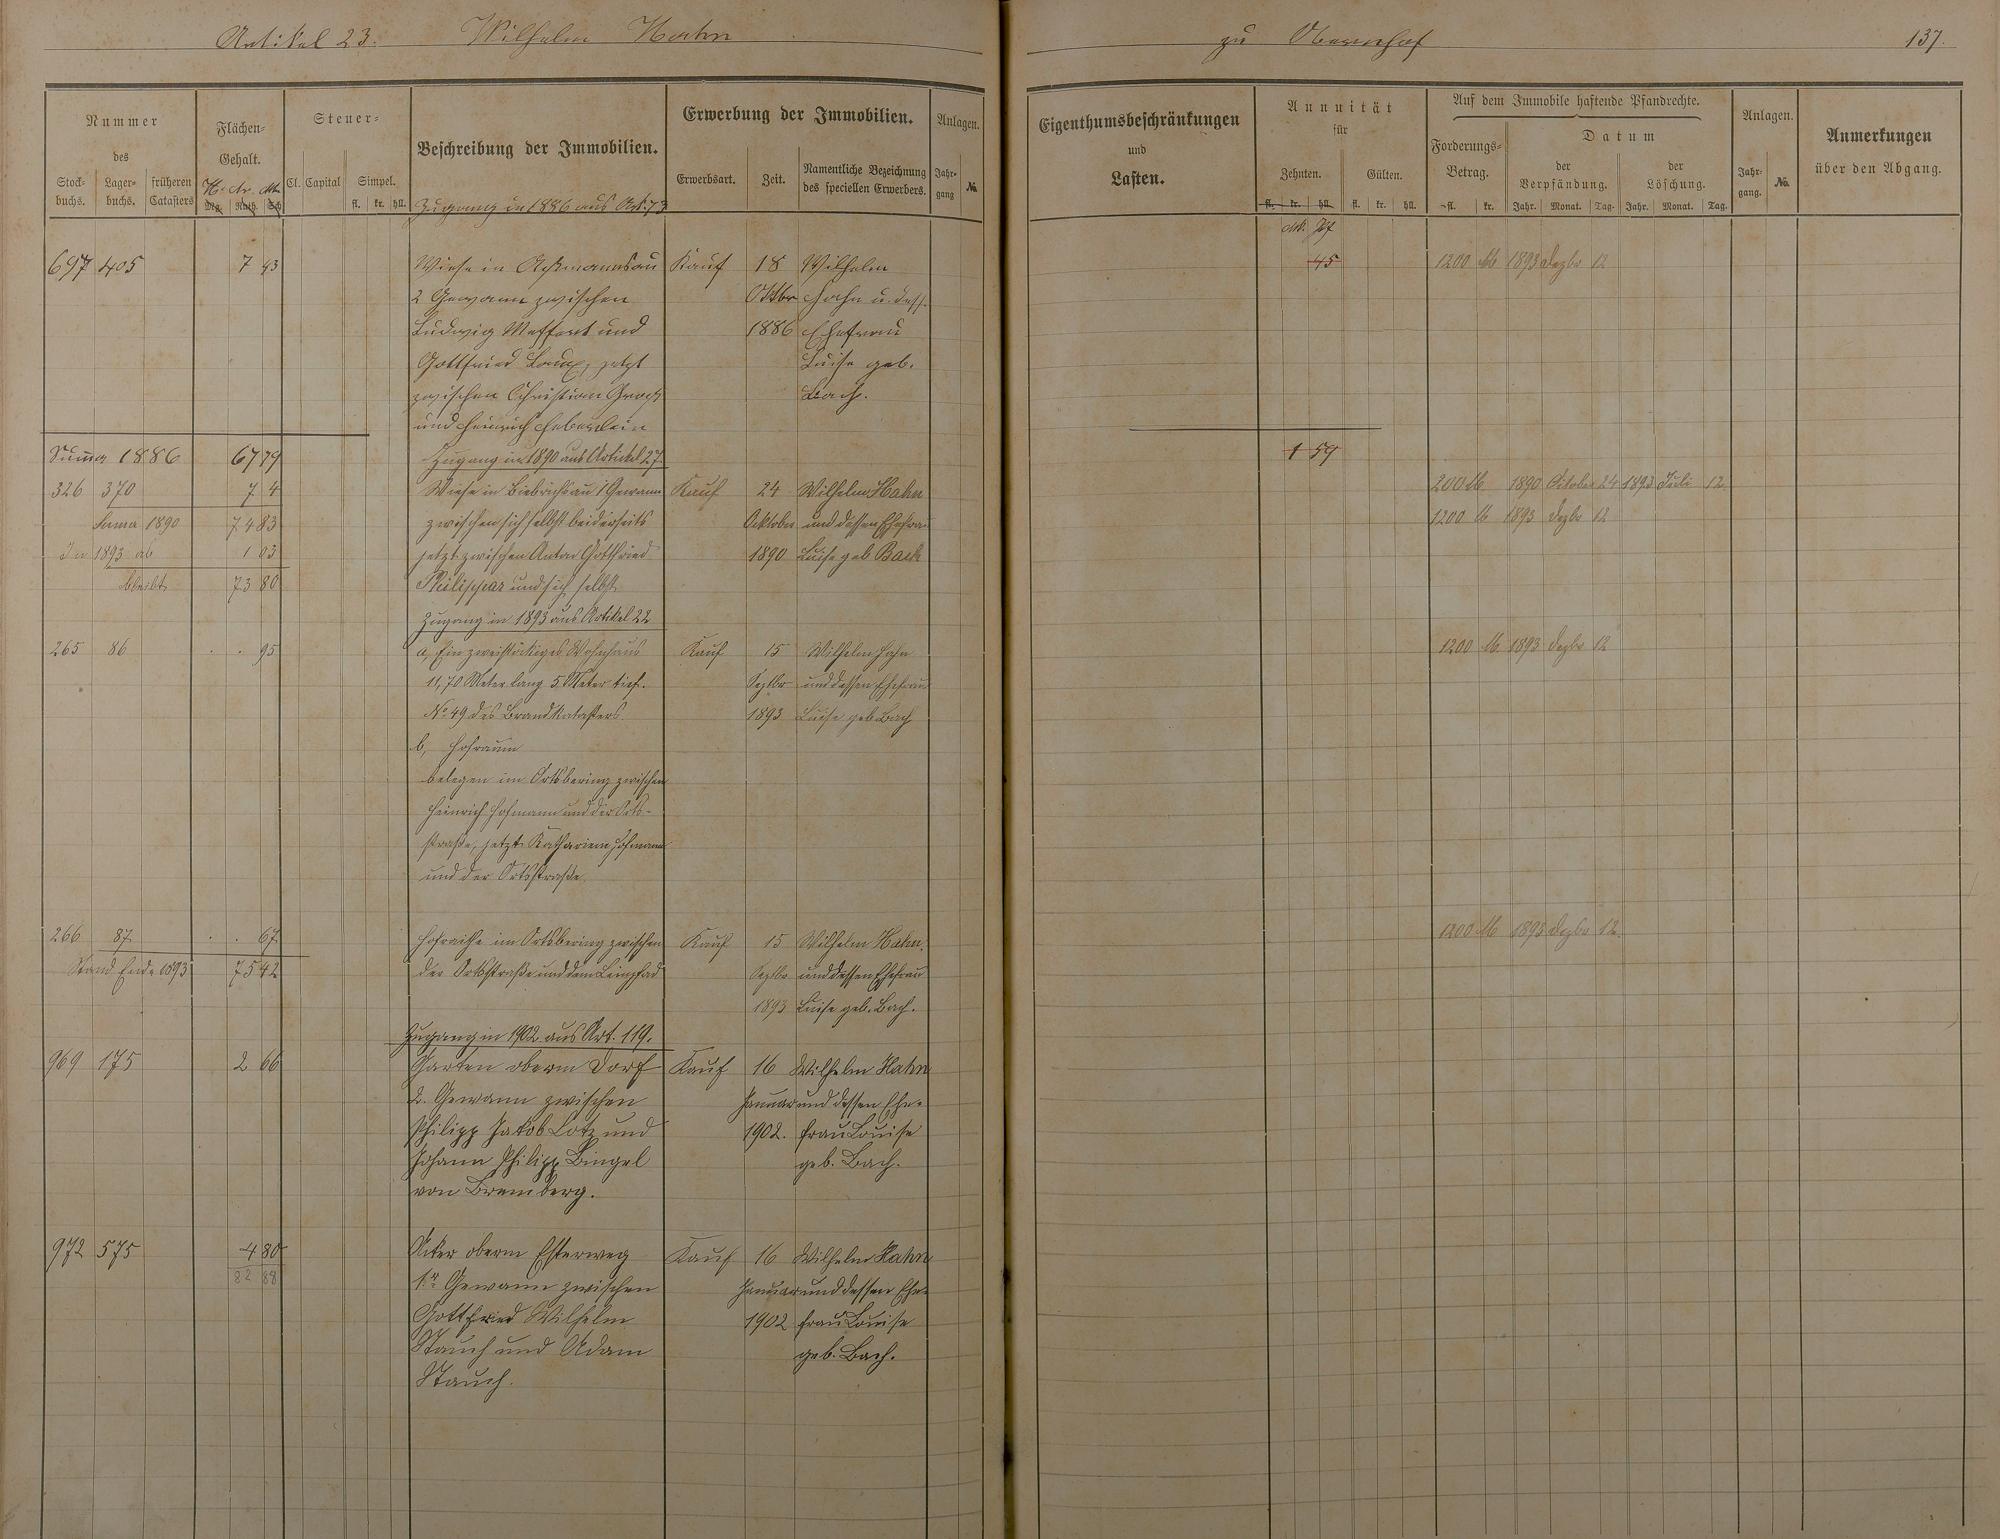 Artikel 23. Wilhelm Hahn zu Obernhof 137.
Nummer
des
Stockbuchs. Lagerbuchs. früheren Catasters
Flächen-
Gehalt.
H. Ar. Mtr.
Mg. Ruth. Sch
Steuer-
Cl. Capital Simpel.
fl. kr. hll.
Beschreibung der Immobilien.
Erwerbung der Immobilien.
Erwerbsart. Zeit. Namentliche Bezeichnung
des speciellen Erwerbers.
Anlagen.
Jahr-
gang No.
Eigenthumsbeschränkungen
und
Lasten.
Annuität
für
Zehnten. Gülten.
fl. kr. hll. fl. kr. hll.
Auf dem Immobile haftende Pfandrechte.
Forderungs-
Betrag.
fl. kr.
Datum
der
Verpfändung.
Jahr. Monat. Tag.
der
Löschung.
Jahr. Monat. Tag.
Anlagen.
Jahr-
gang. No.
Anmerkungen
über den Abgang.
Zugang in 1886 aus Art. 73
Mk. Pf
697 405 7 43 Wiese in Kauf 18 Wilhelm 45 1200 M 1893 Dezbr 12
2 Gewann zwischen Oktbr Hahn u. dess.
Ludwig Meffert und 1886 Ehefrau
Gottfried Laux, jetzt Luise geb.
zwischen Christian Bach.
und Heinrich Heberlein
Summa 1886 67 79 Zugang in 1890 aus Artikel 27. 1 59
326 370 7 4 Wiese in Biebrichsau 1 Gewann Kauf 24 Wilhelm Hahn 200 M 1890 October 24 1893 Juli 12.
Suma 1890 74 83 zwischen sich selbst beiderseits Oktober und dessen Ehefrau 1200 M 1893 Dezbr 12
In 1893 ab 1 03 jetzt zwischen Anton Gottfried 1890 Luise geb Bach
bleibt 73 80 Philippar und sich selbst
Zugang in 1893 aus Artikel 22
265 86 . . 95 a, Ein zweistöckiges Wohnhaus Kauf 15 Wilhelm Hahn 1200 M 1893 Dezbr 12
11,70 Meter lang 5 Meter tief. Septbr und dessen Ehefrau
No 49 des Brandkatasters 1893 Luise geb Bach
b, Hofraum
belegen im Ortsbering zwischen
Heinrich Hofmann und der Orts-
straße, jetzt Hofmann
und der Ortsstraße.
266 87 . . 67 Hofraithe im Ortsbering zwischen Kauf 15 Wilhelm Hahn 1200 M 1893 Dezbr 12.
Stand Ende 1893 75 42 der Ortsstraße und dem Leinpfad Septbr und dessen Ehefrau
1893 Luise geb. Bach.
Zugang in 1902 aus Art. 119.
969 175 2 66 Garten oberm Dorf Kauf 16 Wilhelm Hahn
2. Gewann zwischen Januar und dessen Ehe-
Philipp Jakob Lotz und 1902. frau Louise
Johann Philipp Bingel geb. Bach.
von Bremberg.
972 575 4 80 Acker oberm Kauf 16 Wilhelm Hahn
82 88 1.te Gewann zwischen Januar und dessen Ehe-
Gottfried Wilhelm 1902 frau Louise
Stauch und Adam geb. Bach.
Stauch.